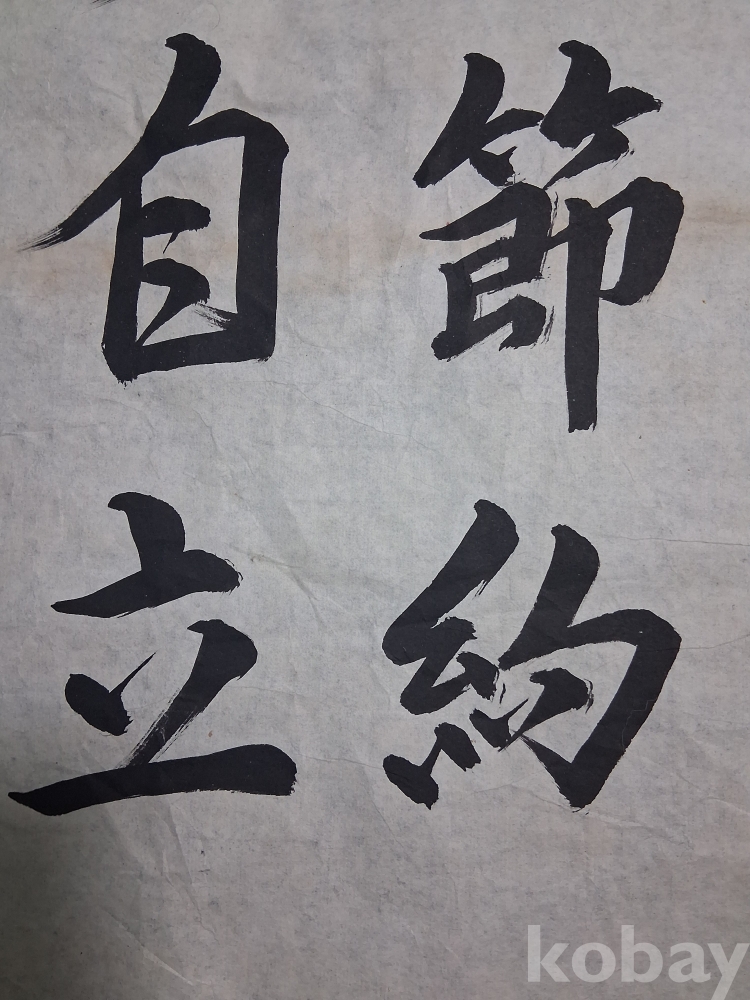 節約
自立
kobay